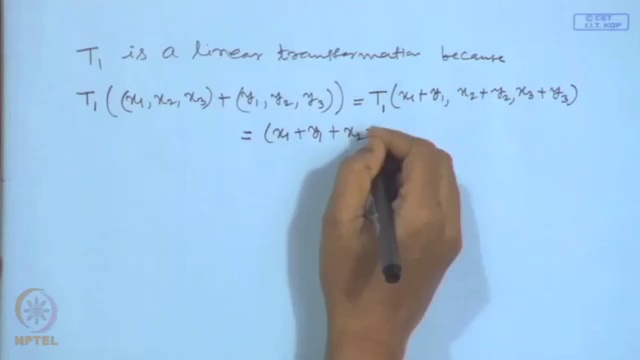 © CET
I.I.T. KGP
T₁ is a linear transformation because
T₁((x₁, x₂, x₃) + (y₁, y₂, y₃)) = T₁(x₁+y₁, x₂+y₂, x₃+y₃)
= (x₁+y₁+x₂
NPTEL